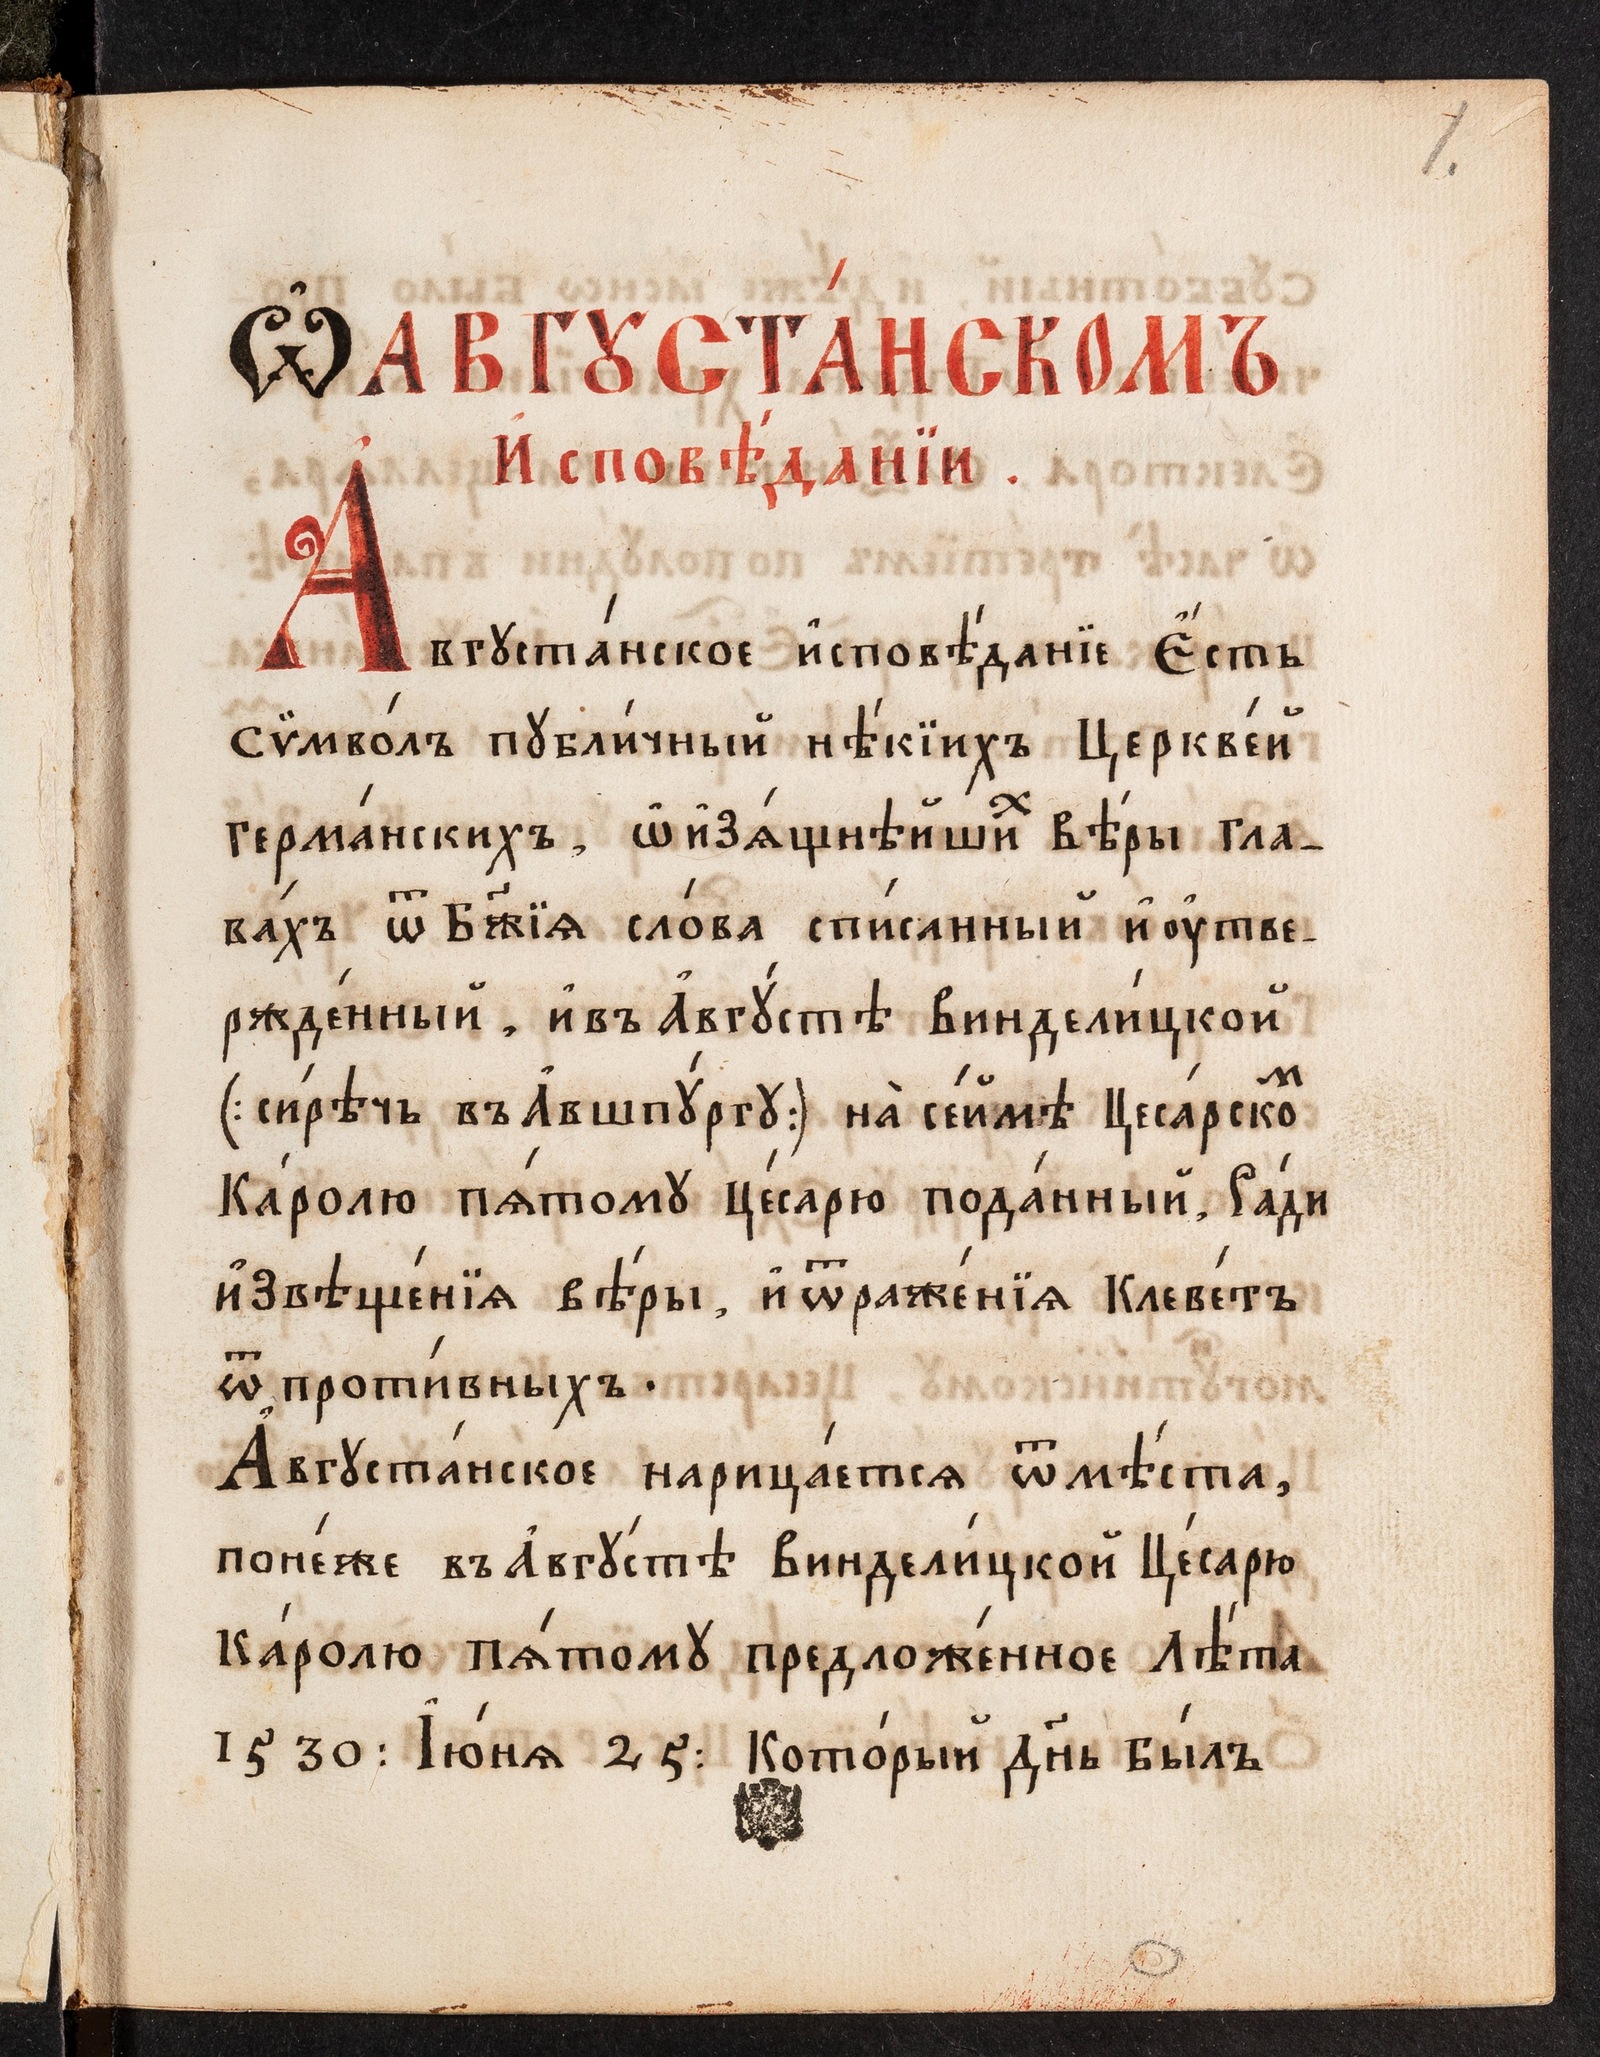 1.
Ѽ АВГꙋСТА́НСКОМЪ
И҆сповѣ́данїи .
Авгꙋста́нское и҆сповѣ́данїе Е҆́сть
сѷмво́лъ пꙋбли́чный нѣ́кїихъ Церкве́й
герма́нскихъ, ѡ҆ и҆зѧ́щнѣйши́ⷯ Вѣ́ры гла-
ва́хъ ѿ Бж҃їѧ сло́ва спи́санный и҆ оу҆тве-
ржде́нный, и҆ въ А҆вгꙋ́стѣ Виндели́цкой
(: си́рѣчь въ А҆вшпꙋ́ргꙋ :) на̀ се́ймѣ Цеса́рскоⷨ
Ка́ролю пѧ́томꙋ Це́сарю пода́нный, Ра́ди
и҆звѣще́нїѧ вѣ́ры, и҆ ѿраже́нїѧ Клеве́тъ
ѿ проти́вныхъ .
А҆вгꙋста́нское нарица́етсѧ ѿ мѣ́ста,
поне́же въ А҆вгꙋ́стѣ Виндели́цкой Це́сарю
Ка́ролю Пѧ́томꙋ предложе́нное Лѣ́та
1530: І҆ю́нѧ 25: Кото́рый дн҃ь бы́лъ